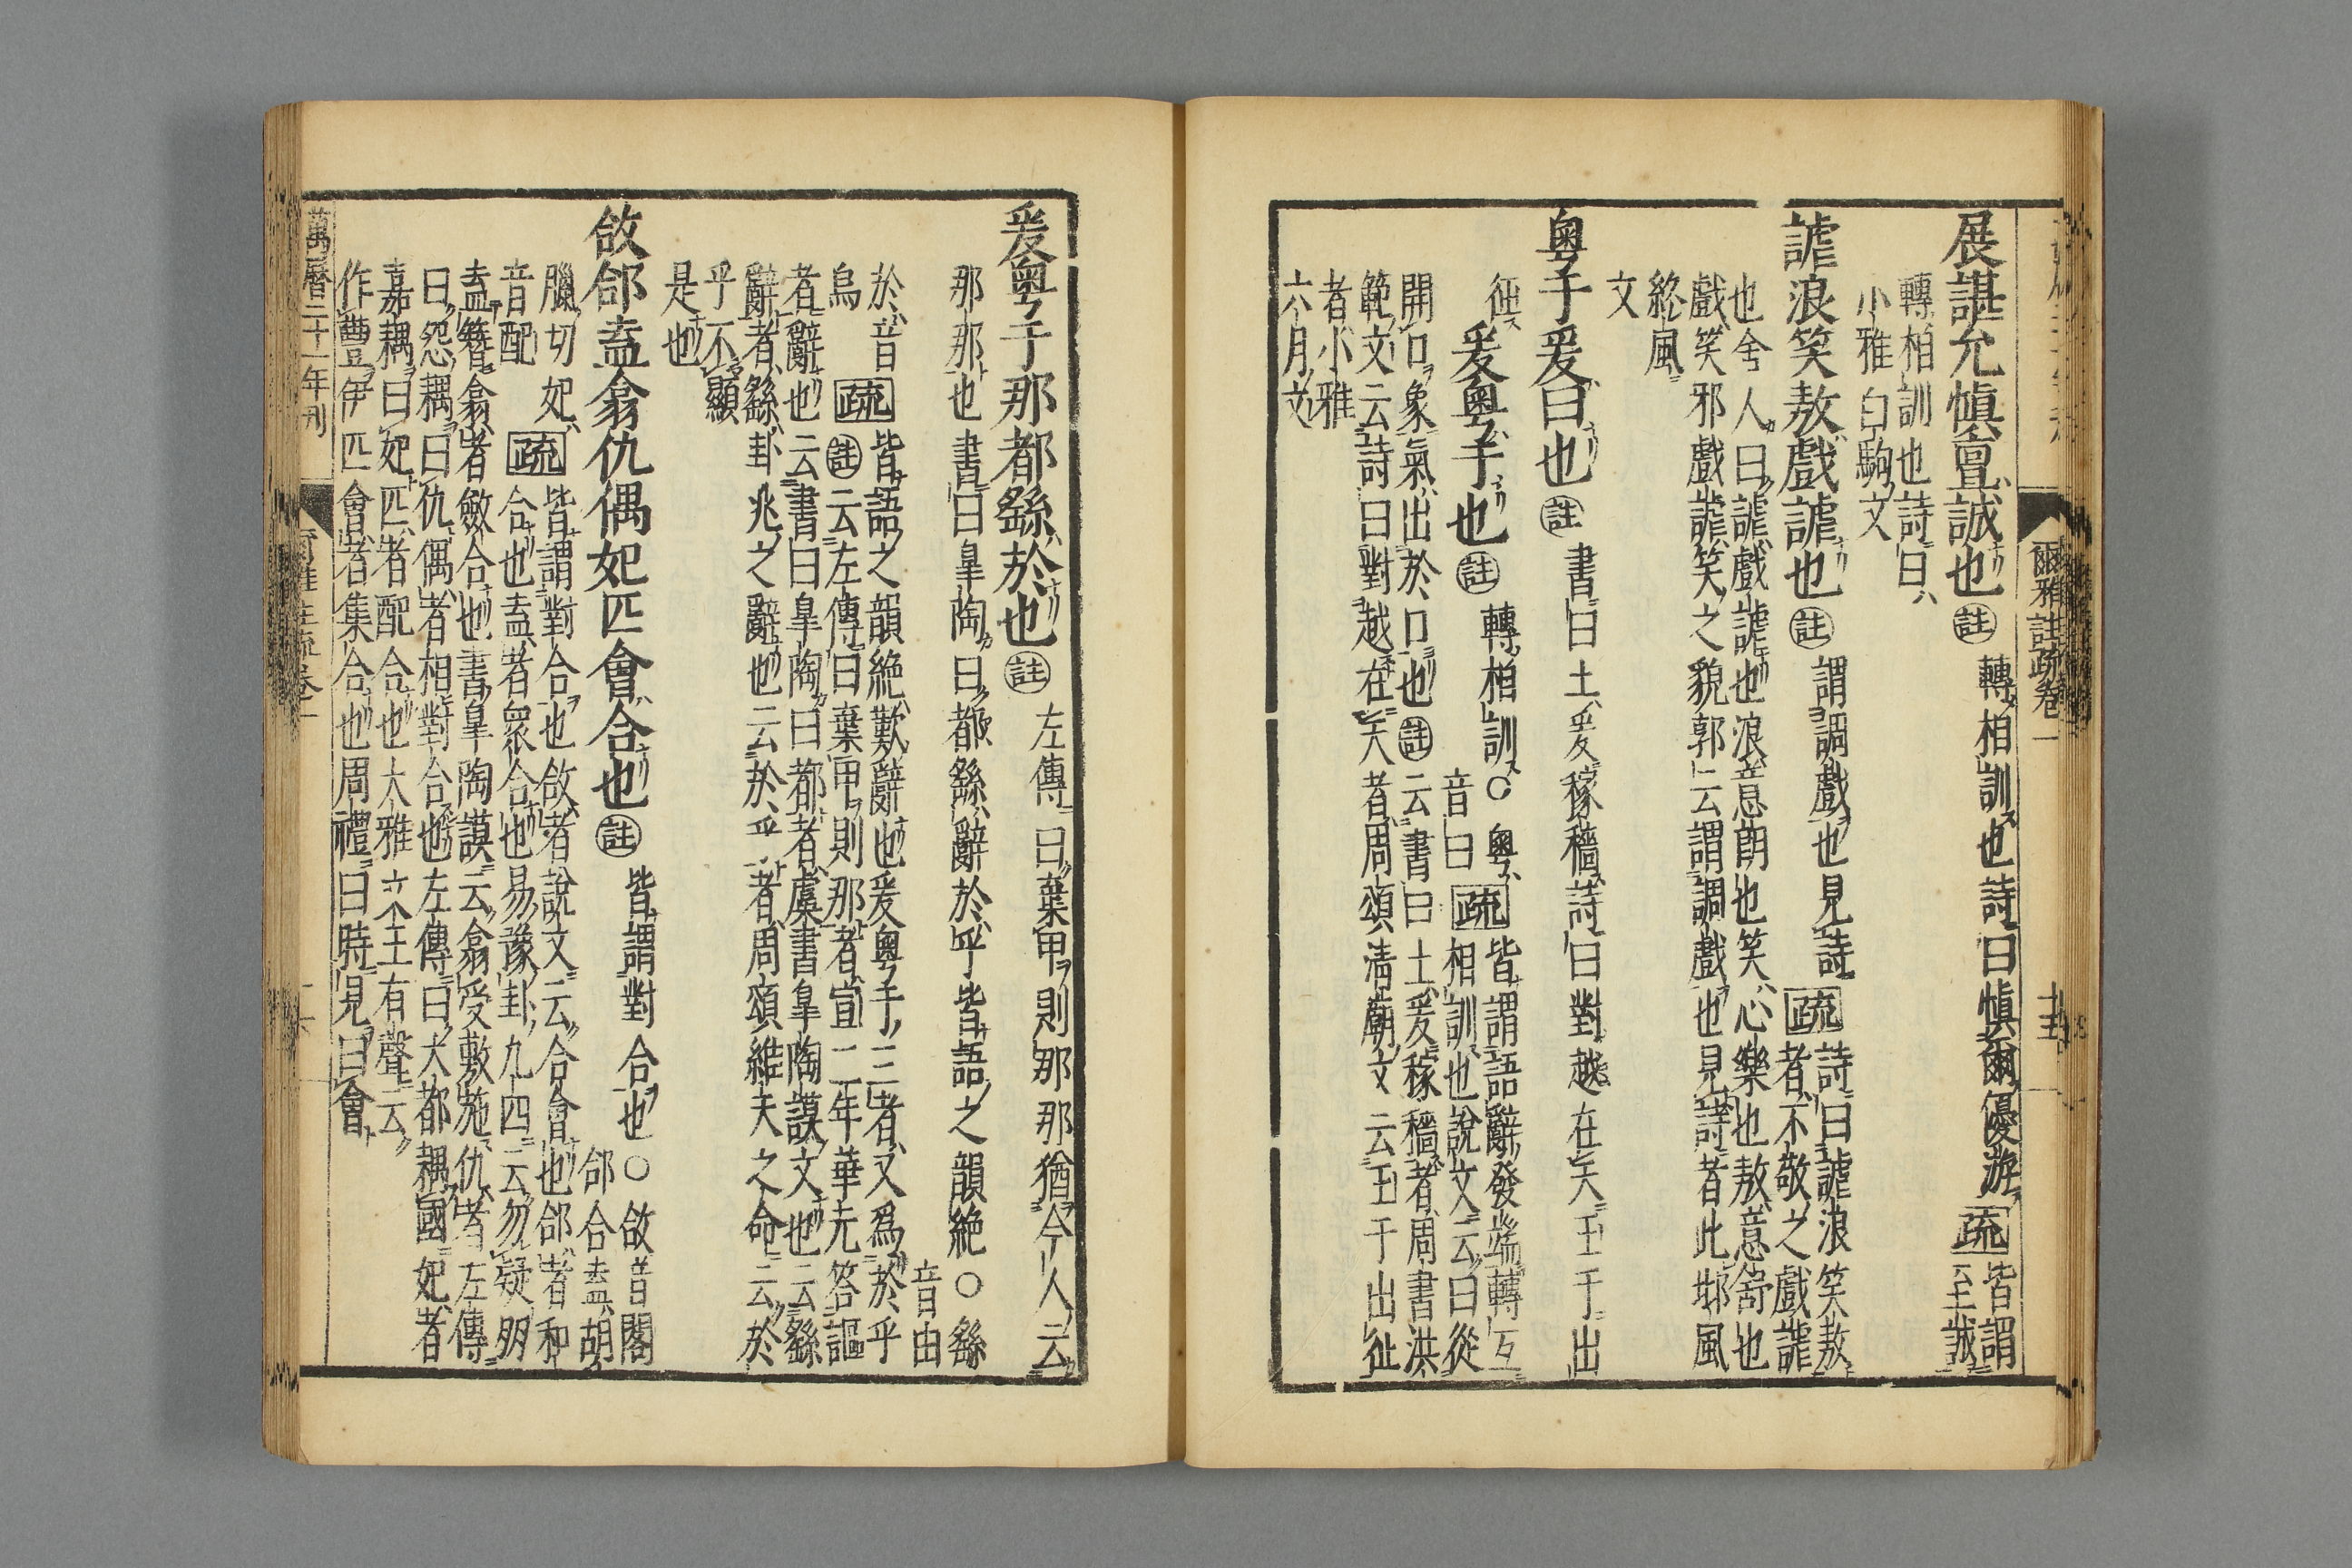 爾雅註疏卷一
展諶允愼亶誠也註轉相訓也詩曰愼爾優游疏皆謂
至誠
轉相訓也詩曰
小雅白駒文
謔浪笑敖戲謔也註謂調戲也見詩疏詩曰謔浪笑敖
者不敬之戲謔
也舍人曰謔戲謔也浪意萠也笑心樂也敖意舒也
戲笑邪戲謔笑之貌郭云謂調戲也見詩者此邶風
終風
文
粤于爰曰也註書曰土爰稼穡詩曰對越在天王于出
征爰粤于也註轉相訓○粤
音曰疏皆謂語辭發端轉互
相訓也說文云曰從
開口象氣出於口也註云書曰土爰稼穡者周書洪
範文云詩曰對越在天者周頌清廟文云王于出征
者小雅
六月文
爰粤于那都繇於也註左傳曰棄甲則那那猶今人云
那那也書曰皐陶曰都繇辭於乎皆語之韻絶○繇
音由
於音
烏疏皆語之韻絶歎辭也爰粤于三者又爲於乎
註云左傳曰棄甲則那者宣二年華元答謳
者辭也云書曰皐陶曰都者虞書皐陶謨文也云繇
辭者繇卦兆之辭也云於乎者周頌維天之命云於
乎不顯
是也
敆郃盍翕仇偶妃匹會合也註皆謂對合也○敆音閤
郃合盍胡
臘切妃
音配疏皆謂對合也敆者說文云合會也郃者和
合也盍者眾合也易豫卦九四云勿疑朋
盍簪翕者斂合也書皐陶謨云翕受敷施仇者左傳
曰怨耦曰仇偶者相對合也左傳曰大都耦國妃者
嘉耦曰妃匹者配合也大雅文王有聲云
作豐伊匹會者集合也周禮曰時見曰會
萬曆二十一年刊
爾雅註疏卷一